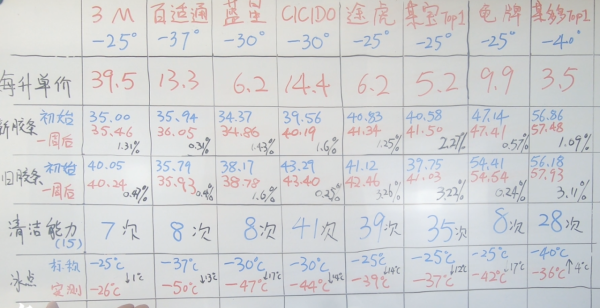 3M 百适通 蓝星 CICIDO 途虎 某宝Top1 龟牌 某多多Top1
-25° -37° -30° -30° -25° -25° -25° -40°
每升单价 39.5 13.3 6.2 14.4 6.2 5.2 9.9 3.5
新胶条 初始 35.00 35.94 34.37 39.56 40.83 40.58 47.14 56.86
一周后 35.46 36.05 34.86 40.19 41.34 41.50 47.41 57.48
1.31% 0.31% 1.43% 1.6% 1.25% 2.27% 0.57% 1.09%
旧胶条 初始 40.05 35.79 38.17 43.29 41.12 39.75 54.41 56.18
一周后 40.24 35.93 38.78 43.40 42.46 41.03 54.54 57.93
0.47% 0.4% 1.6% 0.25% 3.26% 3.22% 0.24% 3.11%
清洁能力 7次 8次 8次 41次 39次 35次 8次 28次
(15)
冰点 标称 -25℃ -37℃ -30℃ -30℃ -25℃ -25℃ -25℃ -40℃
实测 -26℃ -50℃ -47℃ -44℃ -39℃ -37℃ -42℃ -36℃
↓1℃ ↓13℃ ↓17℃ ↓14℃ ↓14℃ ↓12℃ ↓17℃ ↑4℃